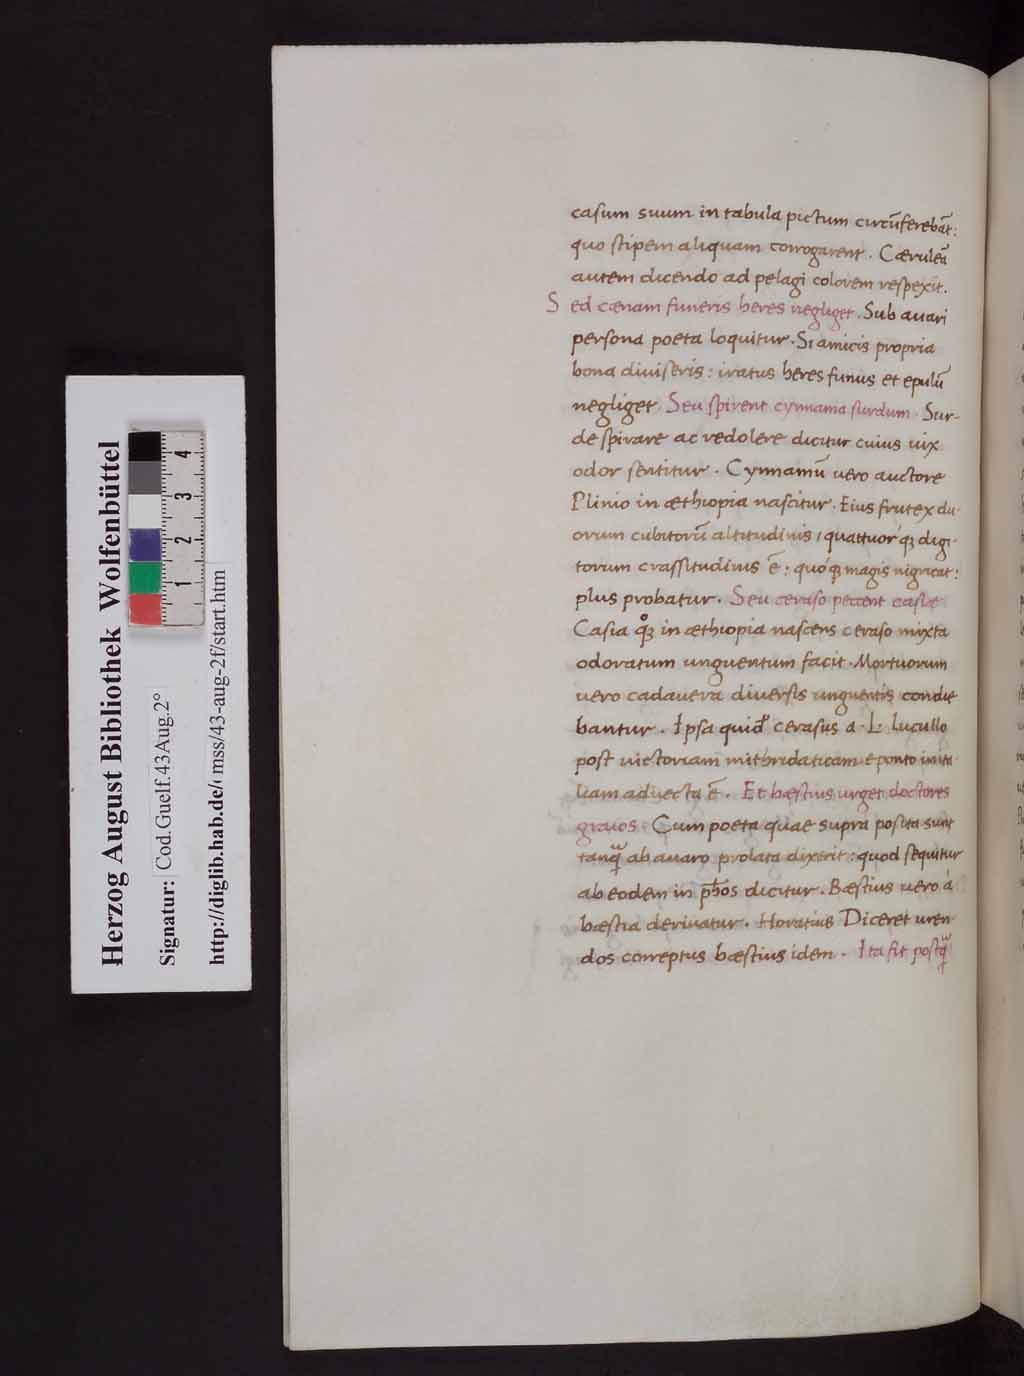 casum suum in tabula pictum circūferebāt:
quo stipem aliquam corrogarent. Cæruleā
autem dicendo ad pelagi colorem respexit.
Sed cænam funeris heres negliget. Sub auari
persona poeta loquitur. Si amicis propria
bona diuiseris: iratus heres funus et epulū
negliget. Seu spirent cynnama surdum. Sur-
de spirare ac redolere dicitur cuius uix
odor sentitur. Cynnamū uero auctore
Plinio in æthiopia nascitur. Eius frutex du-
orum cubitorū altitudinis, quattuorqꝫ digi-
torum crassitudinis ē: quoqꝫ magis nigricat:
plus probatur. Seu ceraso peccent casiæ
Casia qͦqꝫ in æthiopia nascens ceraso mixta
odoratum unguentum facit. Mortuorum
uero cadauera diuersis unguentis condie
bantur. Ipsa quid̓ cerasus a. L. lucullo
post uictoriam mithridaticam e ponto in ita
liam aduecta ē. Et bæstius urget doctores
graios. Cum poeta quae supra posita sunt
tanq̄ ab auaro prolata dixerit: quod sequitur
ab eodem in ph̄os dicitur. Bæstius uero á
bæstia deriuatur. Horatius Diceret uren
dos correptus bæstius idem. Ita fit postq̄
Herzog August Bibliothek Wolfenbüttel
Signatur: Cod.Guelf.43Aug.2°
http://diglib.hab.de/mss/43-aug-2f/start.htm
1 2 3 4